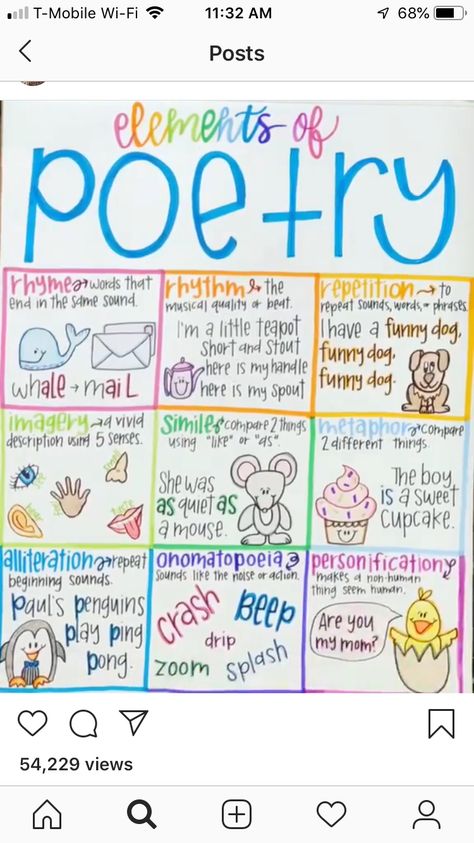 T-Mobile Wi-Fi 11:32 AM 68%
Posts
elements of
poetry
rhyme → words that
end in the same sound.
whale → mail
rhythm → the
musical quality or beat.
I'm a little teapot
short and stout
here is my handle
here is my spout
repetition → to
repeat sounds, words, or phrases.
I have a funny dog,
funny dog,
funny dog.
imagery → a vivid
description using 5 senses.
simile → compare 2 things
using "like" or "as".
She was
as quiet as
a mouse.
metaphor → compare
2 different things.
The boy
is a sweet
cupcake.
alliteration → repeat
beginning sounds.
paul's penguins
play ping
pong.
onomatopoeia →
sounds like the noise or action.
crash
Beep
drip
zoom
splash
personification →
makes a non-human
thing seem human.
Are you
my mom?
54,229 views